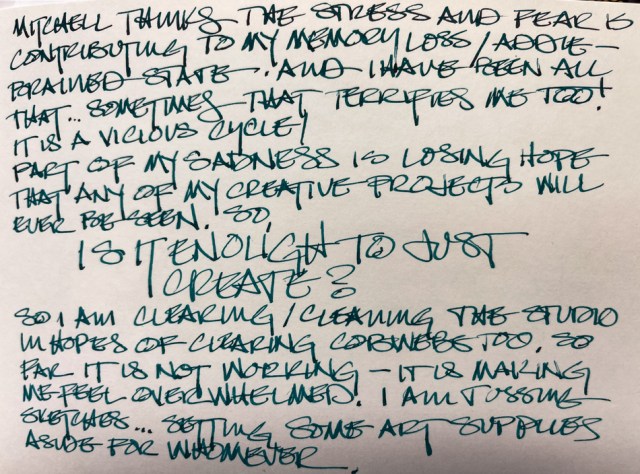 MITCHELL THINKS THE STRESS AND FEAR IS
CONTRIBUTING TO MY MEMORY LOSS / ADDLE-
BRAINED STATE.. AND I HAVE BEEN ALL
THAT... SOMETIMES THAT TERRIFIES ME TOO!
IT IS A VICIOUS CYCLE!
PART OF MY SADNESS IS LOSING HOPE
THAT ANY OF MY CREATIVE PROJECTS WILL
EVER BE SEEN. SO,
IS IT ENOUGH TO JUST
CREATE?
SO I AM CLEARING / CLEANING THE STUDIO
IN HOPES OF CLEARING COBWEBS TOO. SO
FAR IT IS NOT WORKING - IT IS MAKING
ME FEEL OVERWHELMED. I AM TOSSING
SKETCHES... SETTING SOME ART SUPPLIES
ASIDE FOR WHOMEVER.